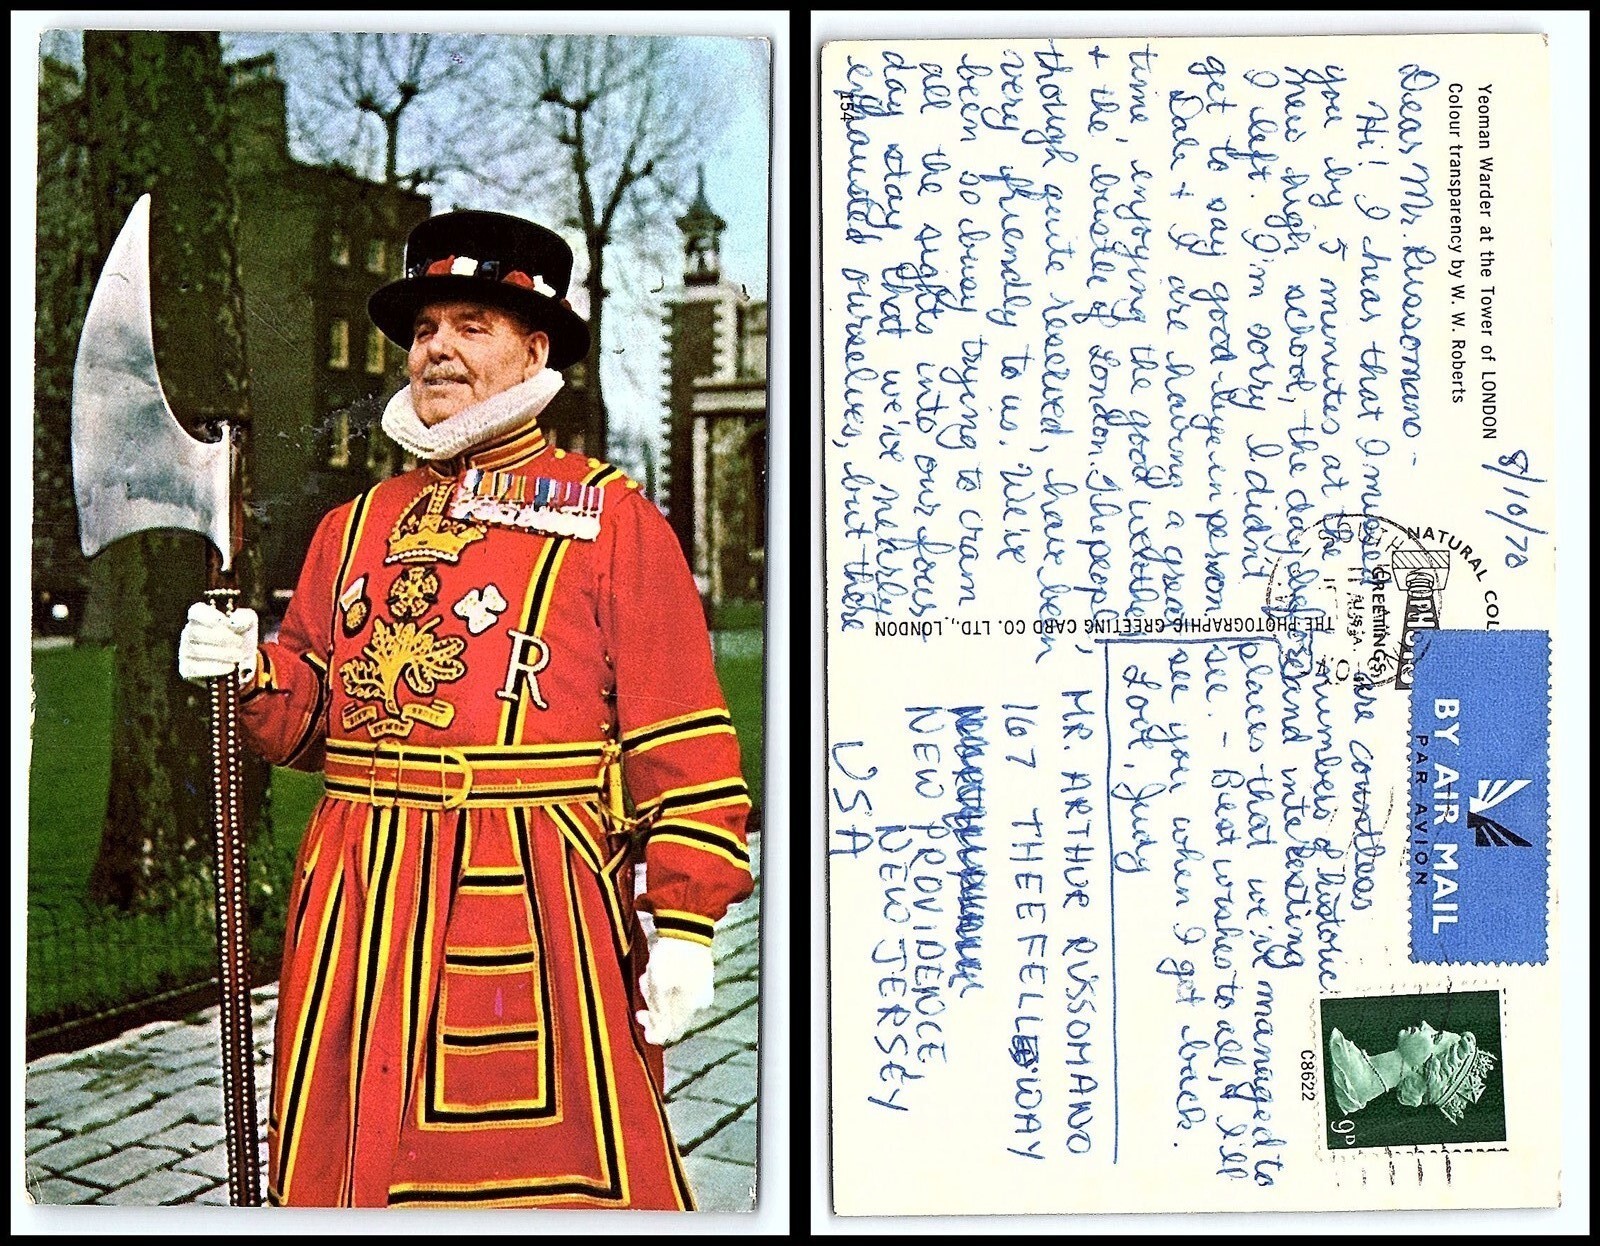 Yeoman Warder at the Tower of LONDON
Colour transparency by W. W. Roberts
8/10/70
Dear Mr. Russomano -
Hi! I hear that I missed
you by 5 minutes at the
new high school, the day before
I left. I'm sorry I didn't
get to say good-bye in person.
Dale + I are having a great
time, enjoying the good weather
+ the bustle of London. The people,
though quite reserved, have been
very friendly to us. We've
been so busy trying to cram
all the sights into our four
day stay that we've nearly
exhausted ourselves, but there
are countless
numbers of historic
and interesting
places that we've managed to
see. - Best wishes to all, & I'll
see you when I get back.
Love, Judy
MR. ARTHUR RUSSOMANO
167 THE FELLSWAY
NEW PROVIDENCE
NEW JERSEY
USA
154
THE PHOTOGRAPHIC GREETING CARD CO. LTD., LONDON
NATURAL COL
PHOTO
GREETINGS
BY AIR MAIL
PAR AVION
9D
C8622
R